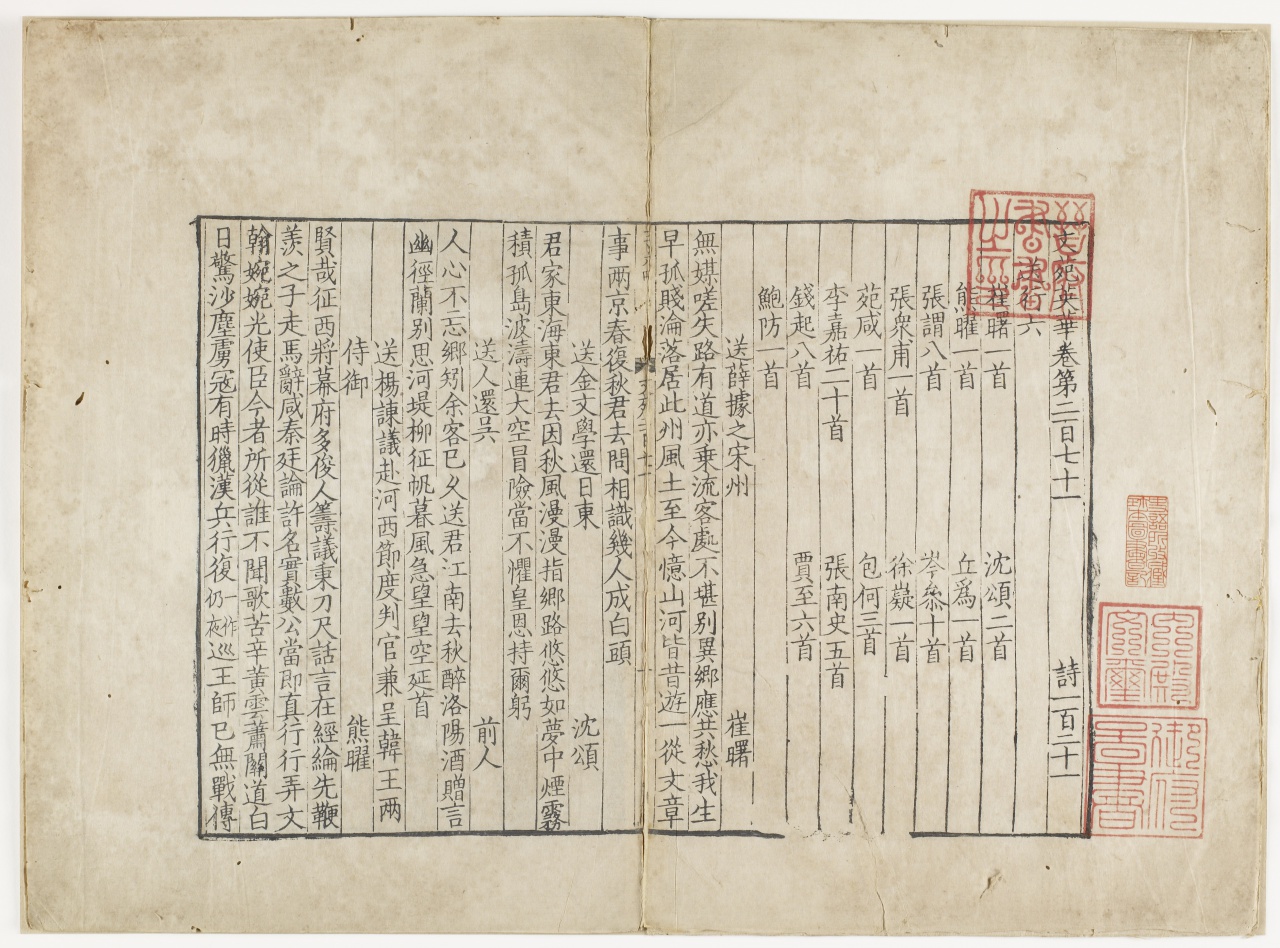 文苑英華卷第二百七十一 詩一百二十一
送行六
崔曙一首 沈頌二首
熊曜一首 丘為一首
張謂八首 岑參十首
張衆甫一首 徐嶷一首
苑咸一首 包何三首
李嘉祐二十首 張南史五首
錢起八首 賈至六首
鮑防一首
送薛據之宋州 崔曙
無媒嗟失路有道亦乗流客處不堪别異鄉應共愁我生
早孤賤淪落居此州風土至今憶山河皆昔遊一從文章
事兩京春復秋君去問相識幾人成白頭
送金文學還日東 沈頌
君家東海東君去因秋風漫漫指郷路悠悠如夢中煙霧
積孤島波濤連大空冒險當不懼皇恩持爾躬
送人還吳 前人
人心不忘鄉矧余客已久送君江南去秋醉洛陽酒贈言
幽徑蘭别思河堤柳征帆暮風急望望空延首
送楊諫議赴河西節度判官兼呈韓王兩
侍御 熊曜
賢哉征西將幕府多俊人籌議秉刀尺話言在經綸先鞭
羨之子走馬辭咸秦廷論許名實數公當即真行行弄文
翰婉婉光使臣今者所從誰不聞歌苦辛黄雲蕭關道白
日驚沙塵虜寇有時獵漢兵行復一作仍夜巡王師已無戰傳
御府
晉府